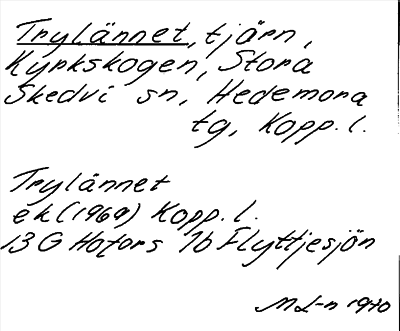 Trylännet, tjärn,
Kyrkskogen, Stora
Skedvi sn, Hedemora
tg, Kopp. l.
Trylännet
ek (1969) Kopp. l.
13 G Hofors 1b Flyttjesjön
M L-n 1970